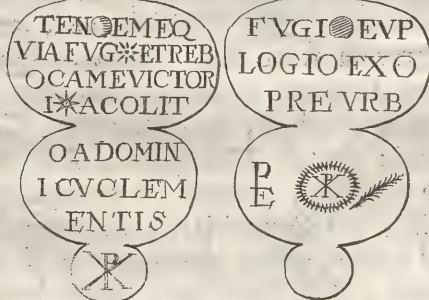 TENOEMEQ
VIAFVG※ETREB
OCAMEVICTOR
I※ACOLIT
OADOMIN
ICVCLEM
ENTIS
FVGIOEVP
LOGIOEXO
PREVRB
P
E